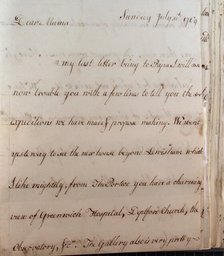 Sunday July
Dear Mama
my last letter being to Papa I will
now trouble you with a few lines to tell you the
expeditions we have made & propose making. We went
yesterday to see the new house beyond Lewisham which
I like mightily, from The Portico you have a charming
view of Greenwich Hospital, Deptford Church, the
Observatory, &c. The Gallery also is very pretty